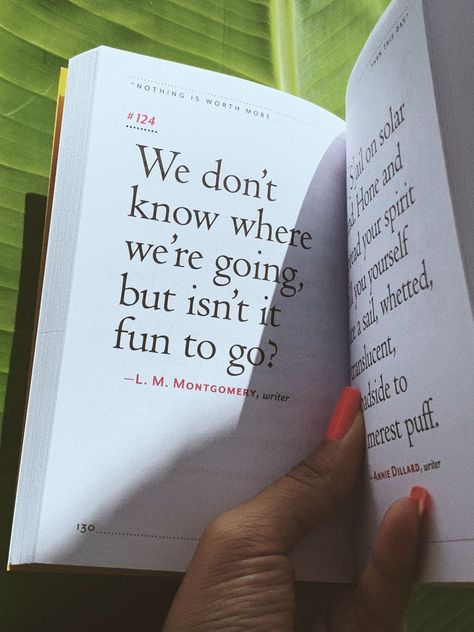 "NOTHING IS WORTH MORE...
#124
We don't
know where
we're going,
but isn't it
fun to go?
—L. M. MONTGOMERY, writer
130
THAN THIS DAY"
on solar
Hone and
your spirit
you yourself
a sail, whetted,
translucent,
to
merest puff.
—ANNIE DILLARD, writer